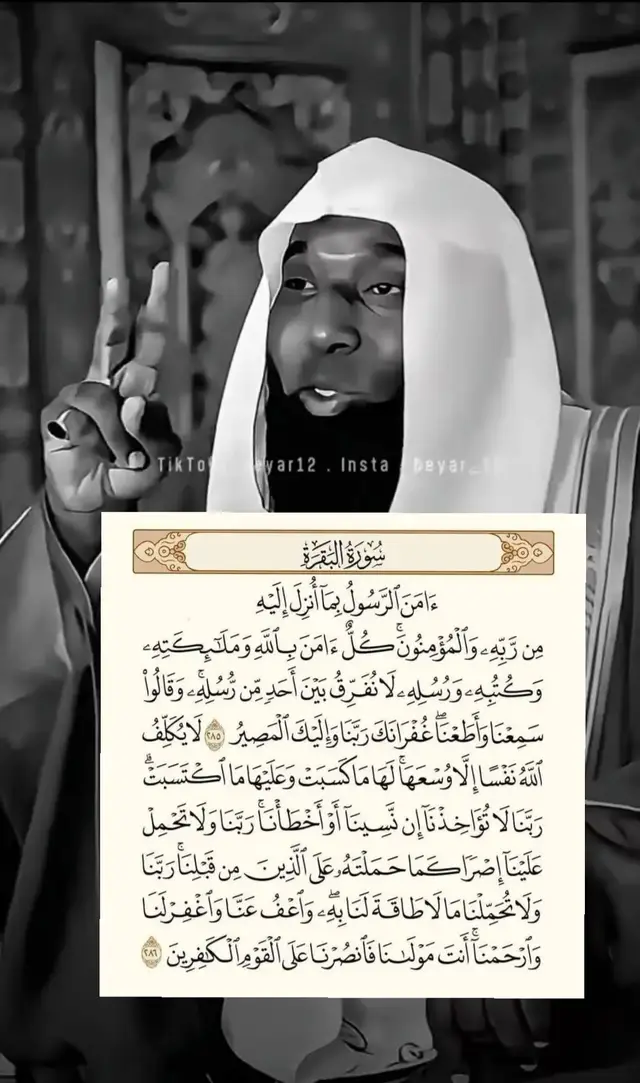 TikTo beyar12 . Insta beyar_
سُورَةُ البَقَرَةِ
ءَامَنَ ٱلرَّسُولُ بِمَآ أُنزِلَ إِلَيْهِ
مِن رَّبِّهِۦ وَٱلْمُؤْمِنُونَۚ كُلٌّ ءَامَنَ بِٱللَّهِ وَمَلَـٰٓئِكَتِهِۦ
وَكُتُبِهِۦ وَرُسُلِهِۦ لَا نُفَرِّقُ بَيْنَ أَحَدٍ مِّن رُّسُلِهِۦۚ وَقَالُوا۟
سَمِعْنَا وَأَطَعْنَاۖ غُفْرَانَكَ رَبَّنَا وَإِلَيْكَ ٱلْمَصِيرُ ٢٨٥ لَا يُكَلِّفُ
ٱللَّهُ نَفْسًا إِلَّا وُسْعَهَاۚ لَهَا مَا كَسَبَتْ وَعَلَيْهَا مَا ٱكْتَسَبَتْۗ
رَبَّنَا لَا تُؤَاخِذْنَآ إِن نَّسِينَآ أَوْ أَخْطَأْنَاۚ رَبَّنَا وَلَا تَحْمِلْ
عَلَيْنَآ إِصْرًا كَمَا حَمَلْتَهُۥ عَلَى ٱلَّذِينَ مِن قَبْلِنَاۚ رَبَّنَا
وَلَا تُحَمِّلْنَا مَا لَا طَاقَةَ لَنَا بِهِۦۖ وَٱعْفُ عَنَّا وَٱغْفِرْ لَنَا
وَٱرْحَمْنَآۚ أَنتَ مَوْلَىٰنَا فَٱنصُرْنَا عَلَى ٱلْقَوْمِ ٱلْكَـٰفِرِينَ ٢٨٦